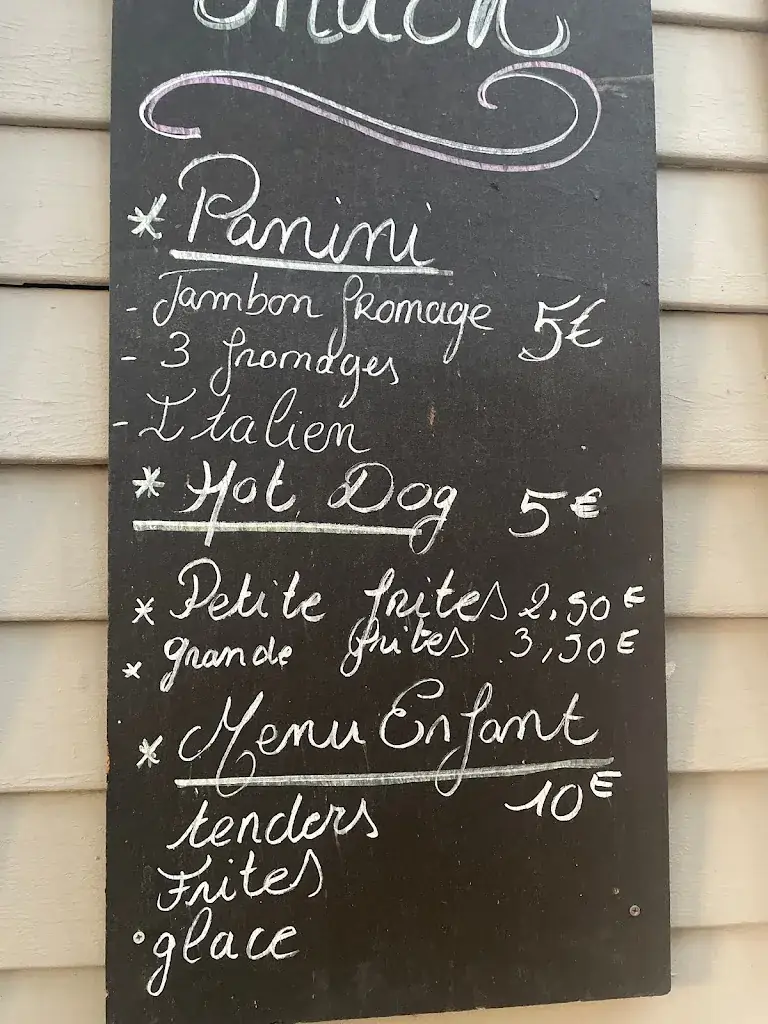 Snack
* Panini
- Jambon fromage 5€
- 3 fromages
- Italien
* Hot Dog 5€
* Petite frites 2,50€
* grande frites 3,50€
* Menu Enfant
tenders 10€
Frites
glace